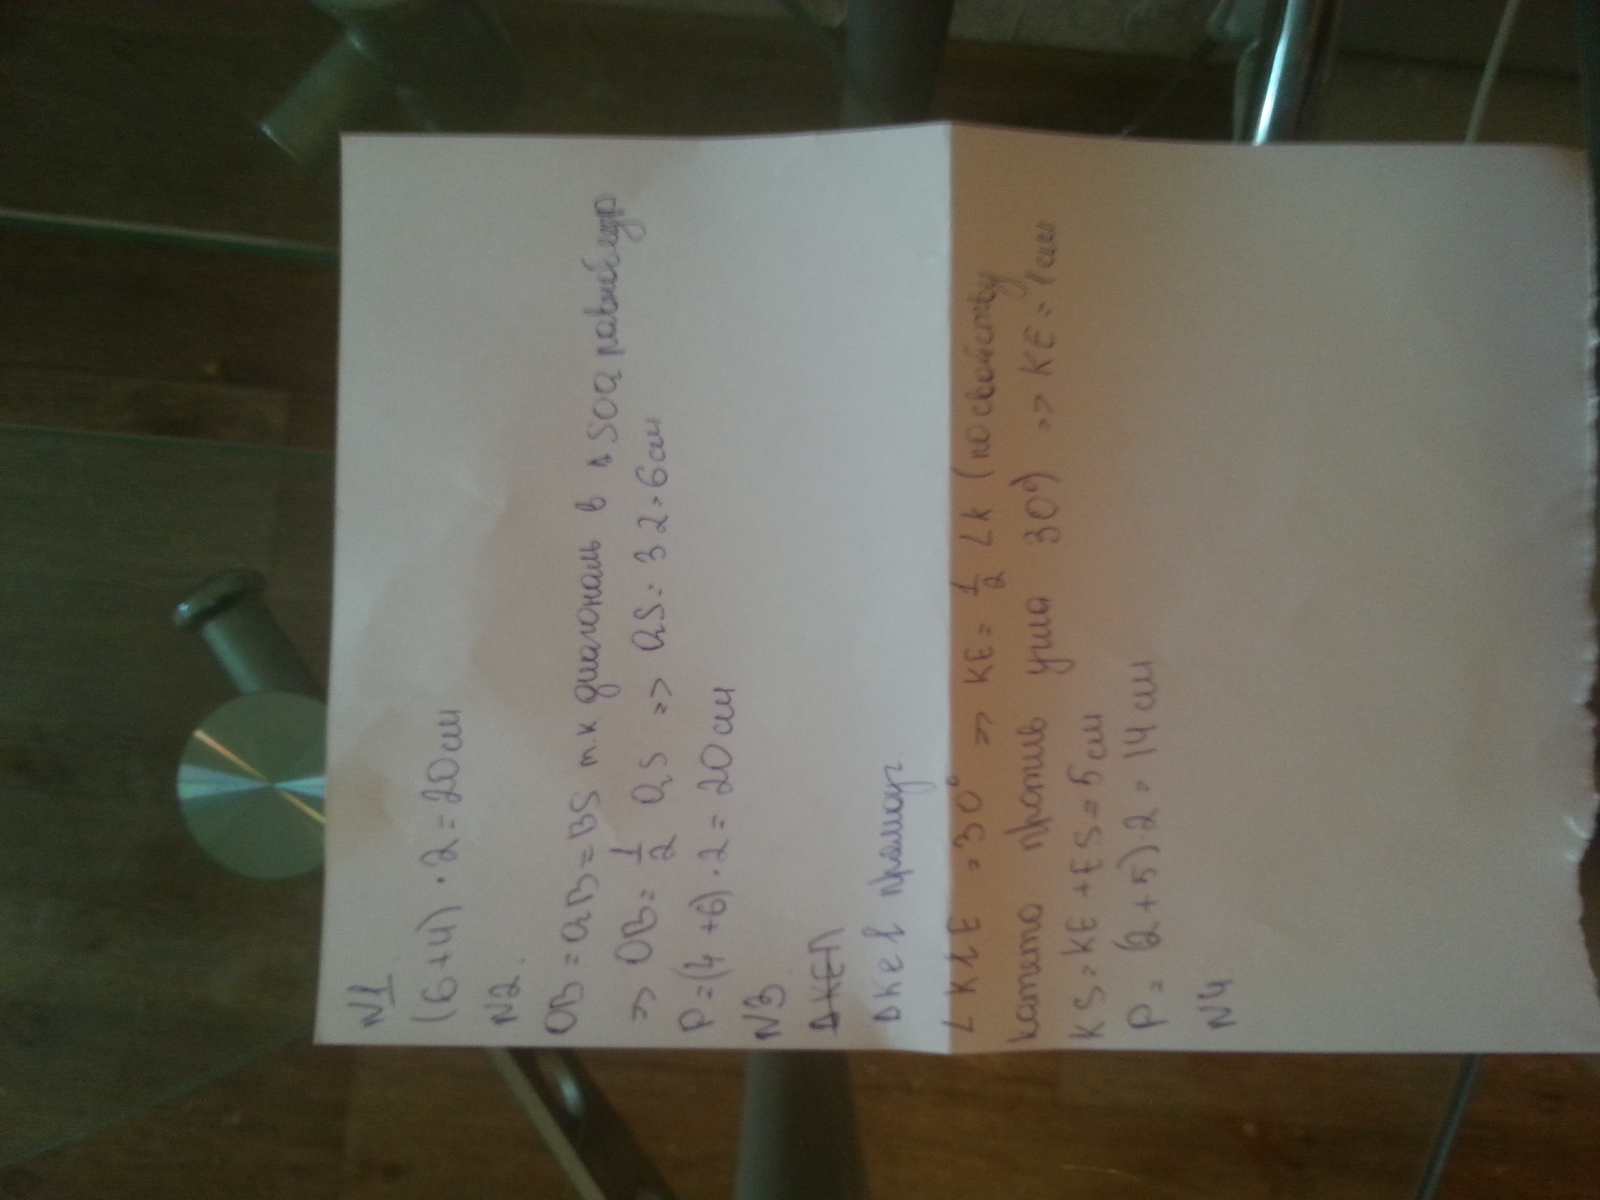 N1.
(6+4)·2=20см
N2.
OB=aB=BS т.к диагональ в Δ SOa равнобедр
=> OB=1/2 aS => aS=3·2=6см
P=(4+6)·2=20см
N3.
ΔKEЛ
ΔKeL прямоуг.
∠KLE=30° => KE=1/2 LK (по свойству
катета против угла 30°) => KE=1см
KS=KE+ES=5см
P=(2+5)·2=14см
N4